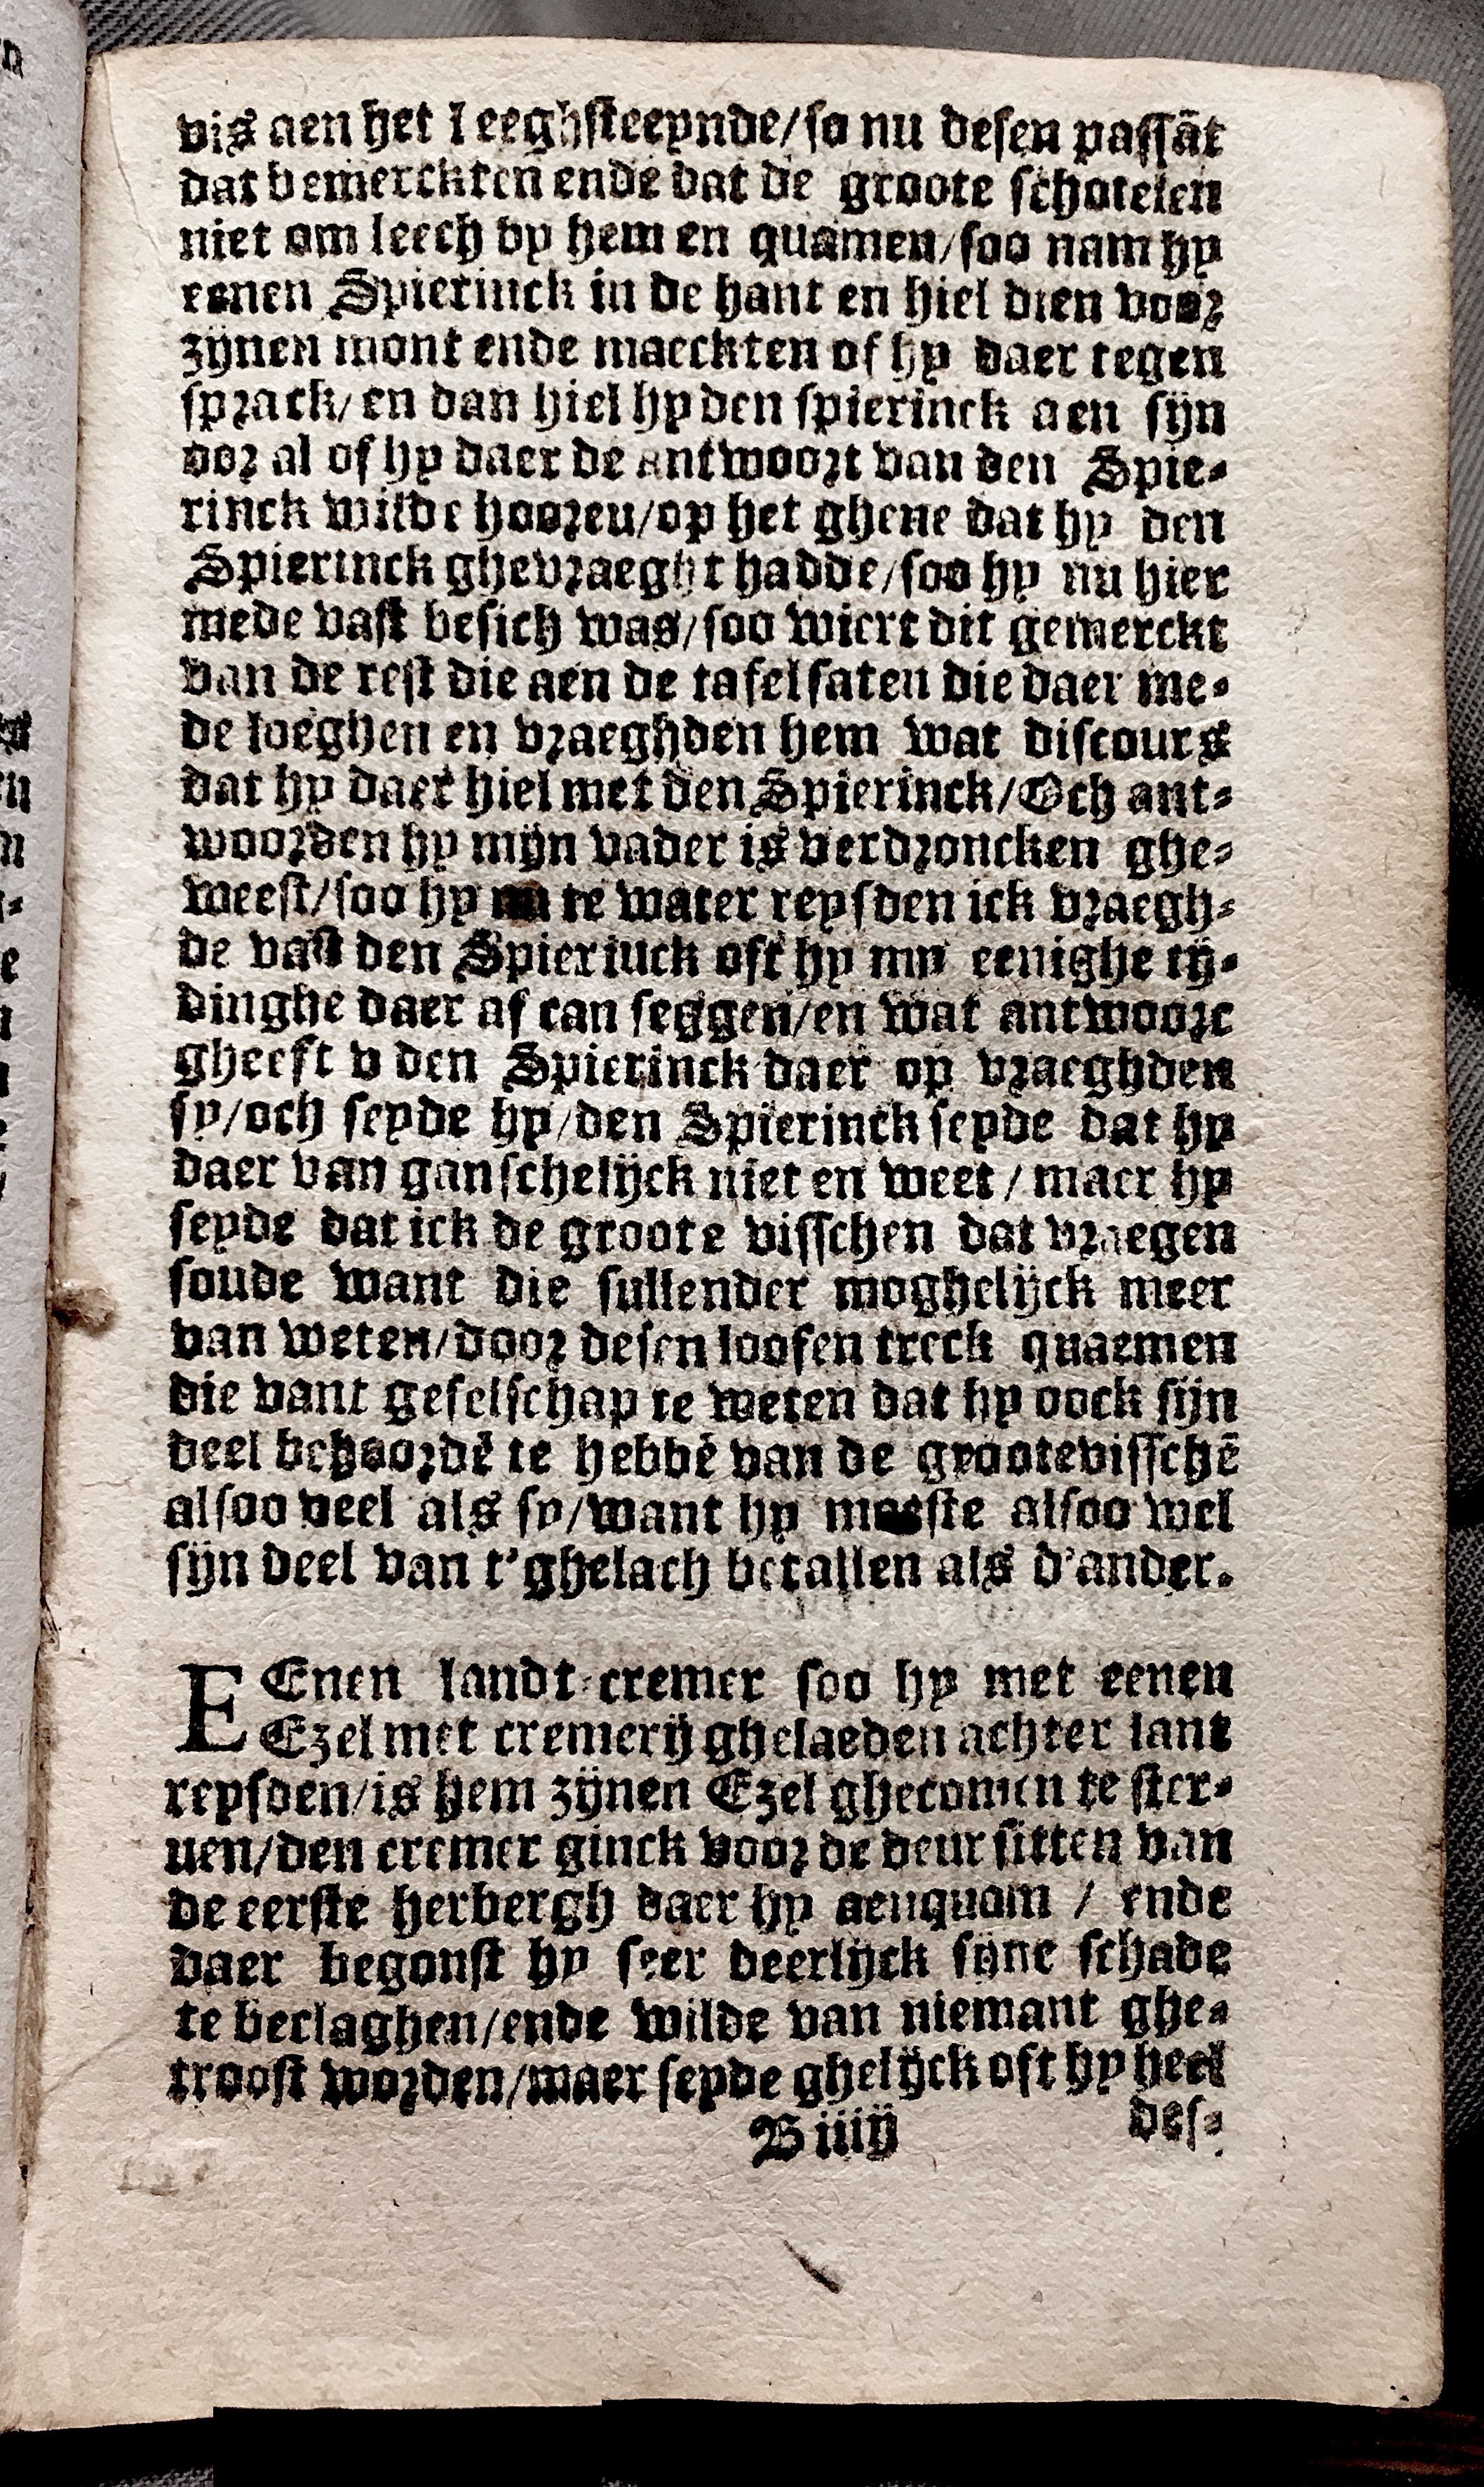 vis aen het leeghsteeynde/so nu desen passāt
dat bemerckten ende dat de groote schotelen
niet om leech by hem en quamen/soo nam hy
eenen Spierinck in de hant en hiel dien voor
zijnen mont ende maeckten of hy daer tegen
sprack/en dan hiel hy den spierinck aen sijn
oor al of hy daer de antwoort van den Spie-
rinck wilde hooren/op het ghene dat hy den
Spierinck ghevraeght hadde/soo hy nu hier
mede vast besich was/soo wiert dit gemerckt
van de rest die aen de tafel saten die daer me-
de loeghen en vraeghden hem wat discours
dat hy daer hiel met den Spierinck/Och ant-
woorden hy mijn vader is verdroncken ghe-
weest/soo hy nu te water reysden ick vraegh-
de vast den Spierinck oft hy my eenighe tij-
dinghe daer af can seggen/en wat antwoort
gheeft v den Spierinck daer op vraeghden
sy/och seyde hy/den Spierinck seyde dat hy
daer van ganschelijck niet en weet/maer hy
seyde dat ick de groote visschen dat vraegen
soude want die sullender moghelijck meer
van weten/door desen loosen treck quaemen
die vant geselschap te weten dat hy oock sijn
deel behoordē te hebbē van de groote visschē
alsoo veel als sy/want hy moeste alsoo wel
sijn deel van t'ghelach betallen als d'ander.
EEnen landt-cremer soo hy met eenen
Ezel met cremerij ghelaeden achter lant
reysden/is hem zijnen Ezel ghecomen te ster-
uen/den cremer ginck voor de deur sitten van
de eerste herbergh daer hy aenquam / ende
daer begonst hy seer deerlijck sijne schade
te beclaghen/ende wilde van niemant ghe-
troost worden/maer seyde ghelijck oft hy heel
B iiij des-